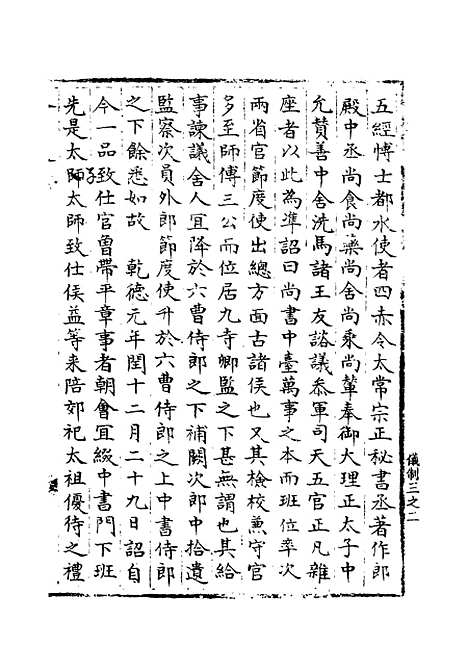 五經博士都水使者四赤令太常宗正秘書丞著作郎
殿中丞尚食尚藥尚舍尚乘尚輦奉御大理正太子中
允賛善中舍洗馬諸王友諮議叅軍司天五官正凡雜
座者以此為準詔曰尚書中臺萬事之本而班位率次
兩省官節度使出總方面古諸侯也又其檢校兼守官
多至師傅三公而位居九寺卿監之下甚無謂也其給
事諫議舍人宜降於六曹侍郎之下補闕次郎中拾遺
監察次員外郎節度使升於六曹侍郎之上中書侍郎
之下餘悉如故 乾德元年閏十二月二十九日詔自
今一品致仕官曾帶平章事者朝會宜綴中書門下班
先是太子師太師致仕侯益等来陪郊祀太祖優待之禮
儀制三之二